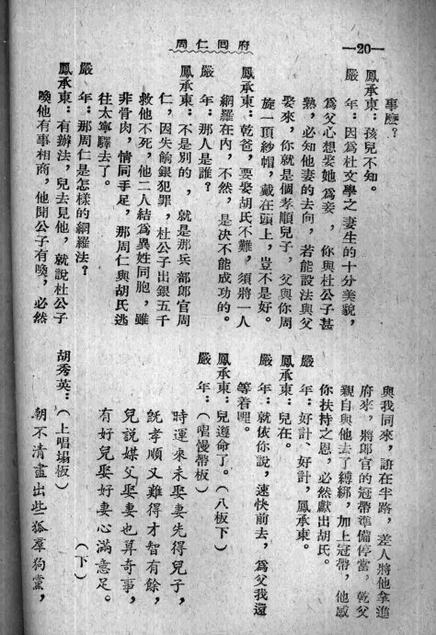 周仁囘府
—20—
事麼？
鳳承東：孩兒不知。
嚴　年：因爲杜文學之妻生的十分美貌，
爲父心想娶她爲妾，你與杜公子甚
熟，必知他妻的去向，若能設法與父
娶來，你就是個孝順兒子，父與你周
旋一頂紗帽，戴在頭上，豈不是好。
鳳承東：乾爸，要娶胡氏不難，須將一人
網羅在內，不然，是決不能成功的。
嚴　年：那人是誰？
鳳承東：不是別的，就是那兵部郎官周
仁，因失餉銀犯罪，杜公子出銀五千
救他不死，他二人結爲異姓同胞，雖
非骨肉，情同手足，那周仁與胡氏逃
往太寧驛去了。
嚴　年：那周仁是怎樣的網羅法？
鳳承東：有辦法，兒去見他，就說杜公子
喚他有事相商，他聞公子有喚，必然
與我同來，誆在半路，差人將他拿進
府來，將郎官的冠帶準備停當，乾父
親自與他去了縛綁，加上冠帶，他感
你扶持之恩，必然獻出胡氏。
嚴　年：好計，好計，鳳承東。
鳳承東：兒在。
嚴　年：就依你說，速快前去，爲父我還
等着哩。
鳳承東：兒遵命了。（八板下）
嚴　年：（唱慢帶板）
時運來未娶妻先得兒子，
旣孝順又難得才智有餘，
兒說媒父娶妻也算奇事，
有好兒娶好妻心滿意足。
（下）
胡秀英：（上唱塌板）
朝不清盡出些狐羣狗黨，